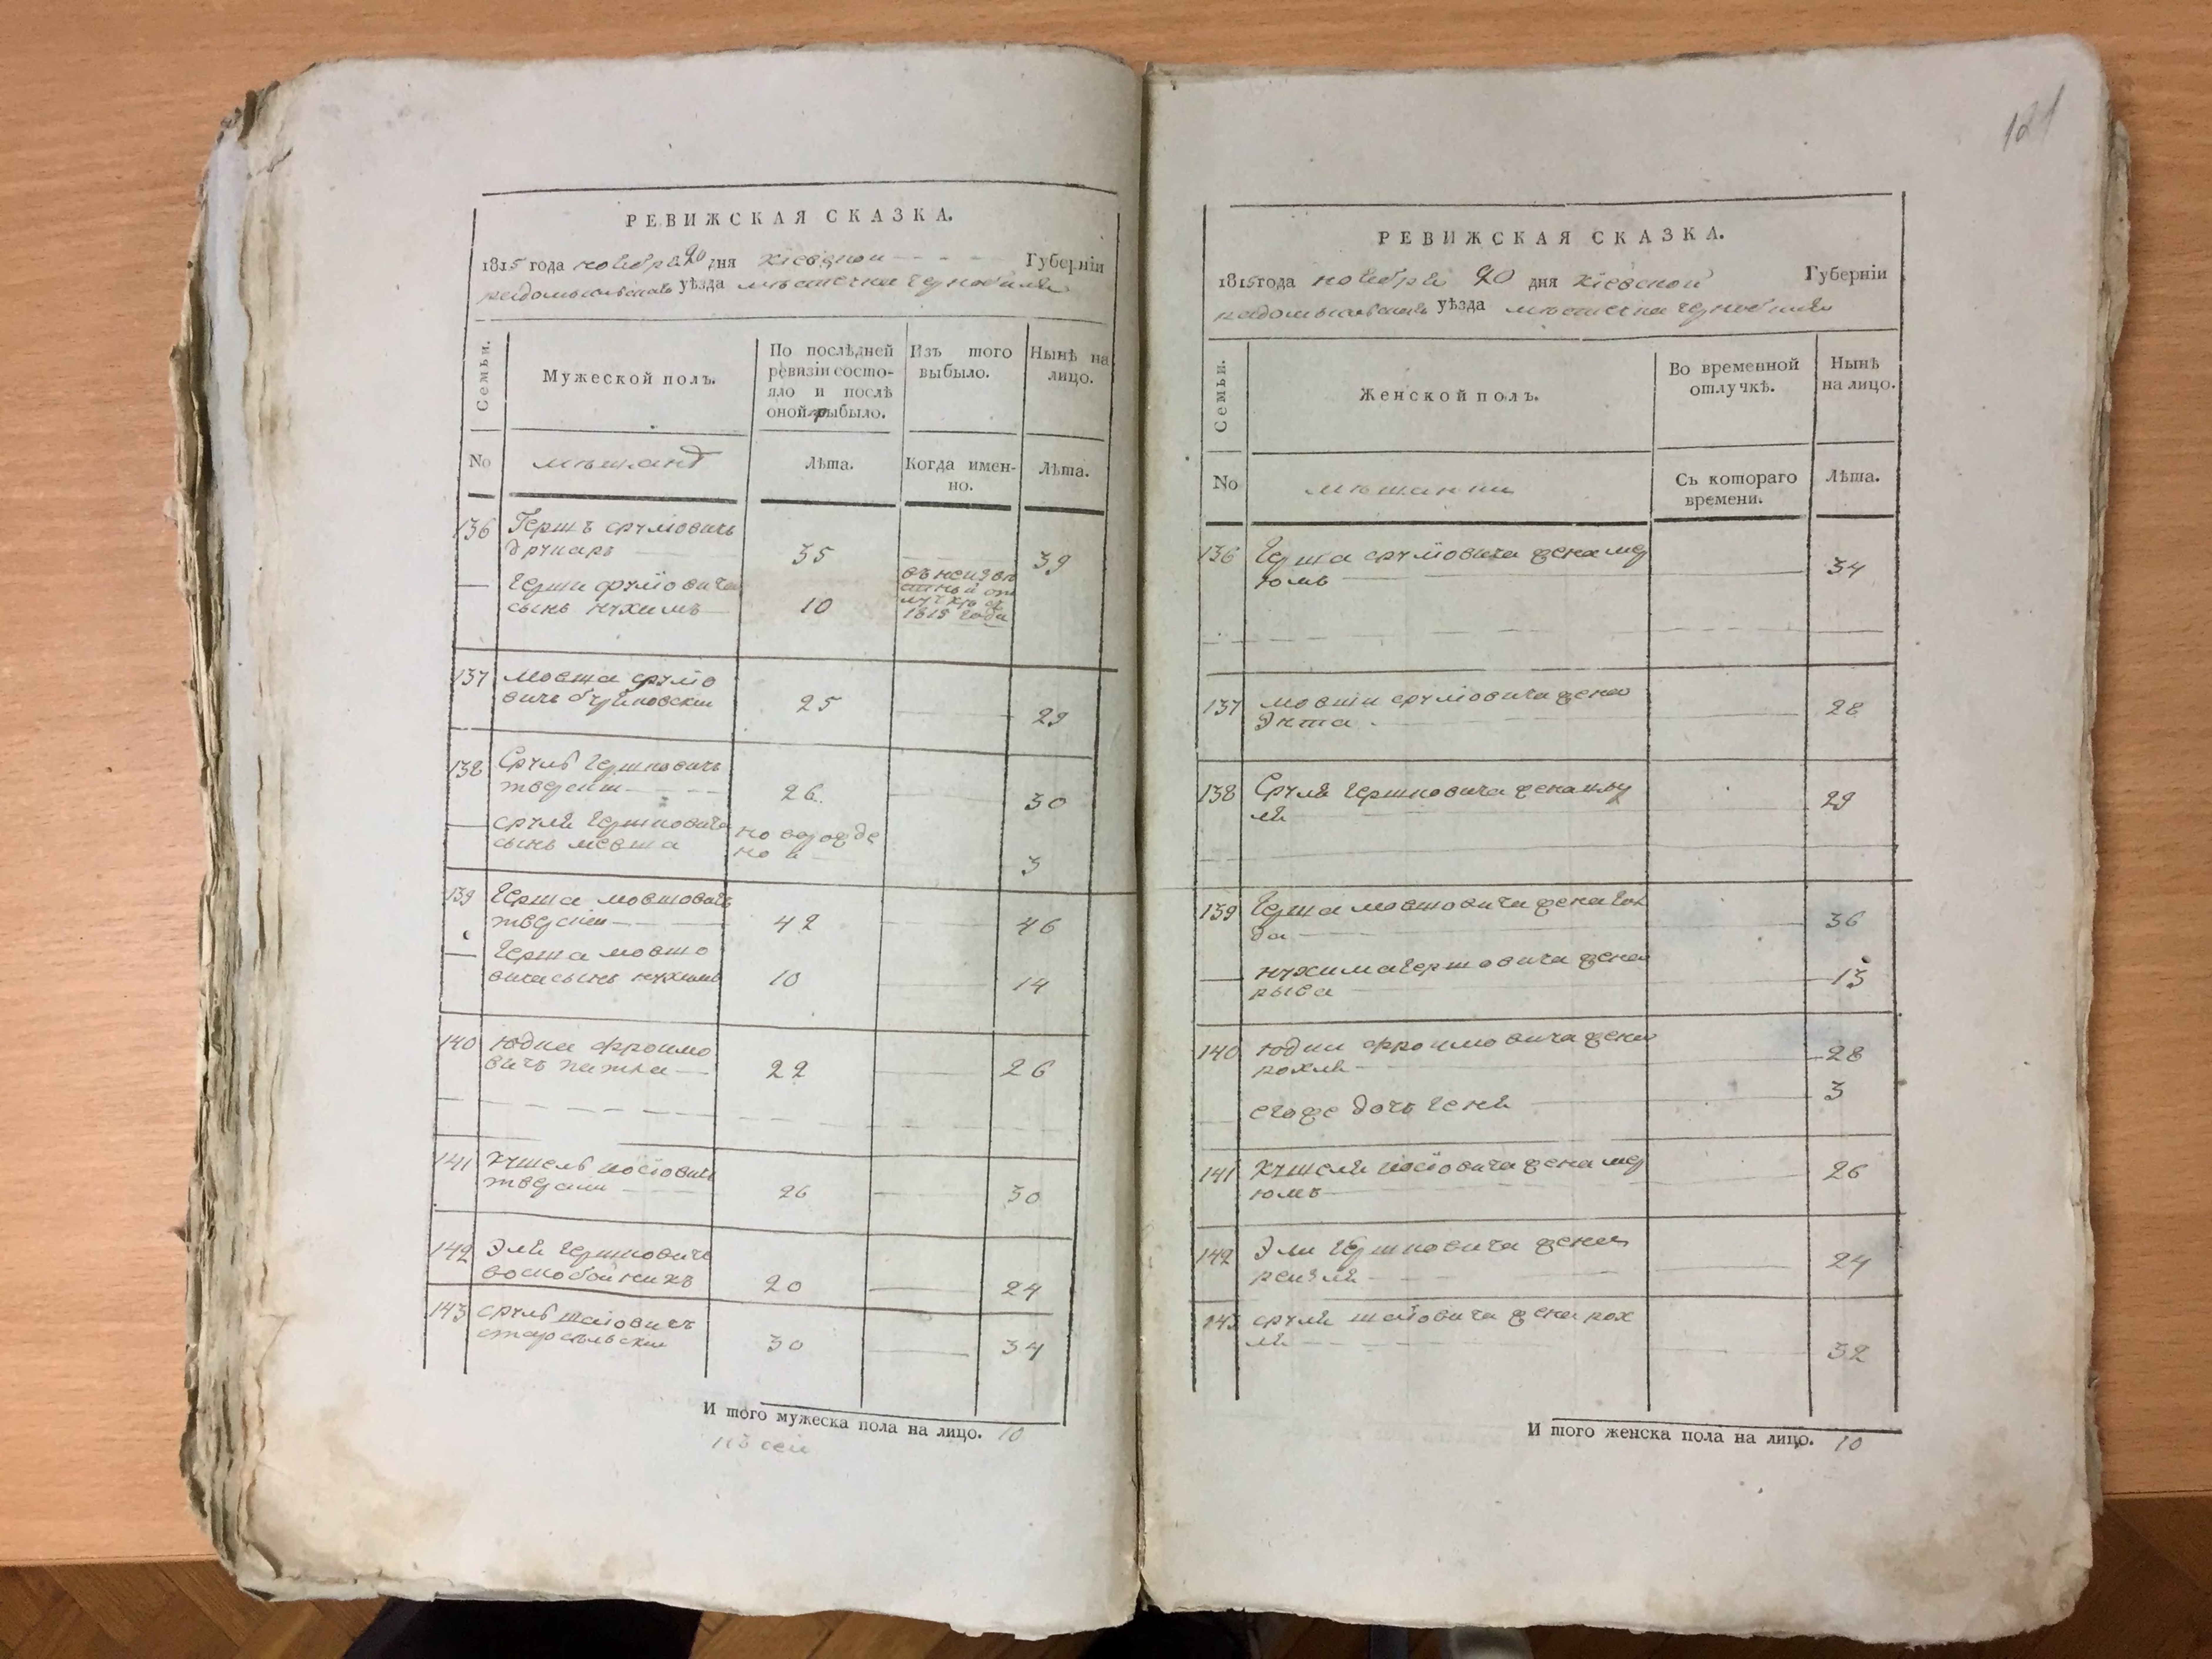 РЕВИЖСКАЯ СКАЗКА.
1815 года ноября 20 дня Кіевской Губерніи
радомысльскаго уѣзда мѣстечка чернобиля
Семьи.
Мужеской полъ.
По послѣдней ревизіи состо-
яло и послѣ
оной рыбыло.
Изъ того
выбыло.
Нынѣ на
лицо.
No
мѣщанъ
Лѣта.
Когда имен-
но.
Лѣта.
136 Гершъ срулiовичъ
друкарь 35 39
Герши срулiовича
сынъ нухимъ 10
въ неизвѣ
стной от
лучкѣ съ
1815 года
137 мовша срулiо
вичъ буйновскiи 25 29
138 Сруль гершковичъ
тверскiи 26 30
сруля гершковича новорожде
сынъ мовша ной 3
139 Герша мовшовичъ
тверскiи 42 46
Герша мовшо
вича сынъ нухимъ 10 14
140 Юдка фроимо
вичъ 22 26
141 Кушель iосiовичъ
тверскiи 26 30
142 Эля гершковичъ
воскобойникъ 20 24
143 сруль шаiовичъ
старосѣльскiи 30 34
И того мужеска пола на лицо. 10
181
РЕВИЖСКАЯ СКАЗКА.
1815 года ноября 20 дня Кіевской Губерніи
радомысльскаго уѣзда мѣстечка чернобиля
Семьи.
Женской полъ.
Во временной
отлучкѣ.
Нынѣ
на лицо.
No
мѣщанки
Съ котораго
времени.
Лѣта.
136 Герша срулiовича жена мер
юмъ 34
137 мовши срулiовича жена
Энта 28
138 Сруля гершковича жена
29
139 Герша мовшовича жена гол
да 36
нухима гершовича жена
рыва 13
140 Юдки фроимовича жена
рохля 28
егоже дочь геня 3
141 Кушеля iосiовича жена мер
юмъ 26
142 Эли гершковича жена
рейзля 24
143 сруля шаiовича жена рох
ля 32
И того женска пола на лицо. 10